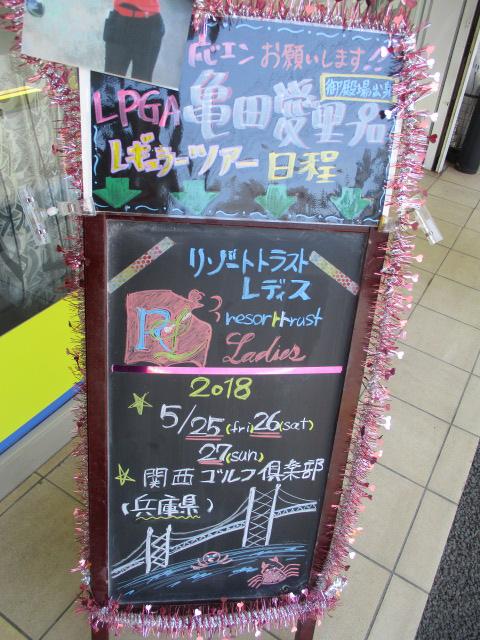 ドビエン お願いします!!
御殿場出身
LPGA 亀田愛里プロ
レギュラーツアー 日程
リゾートトラスト
レディス
RTL
resorttrust
Ladies
2018
5/25(fri)26(sat)
27(sun)
関西ゴルフ倶楽部
(兵庫県)